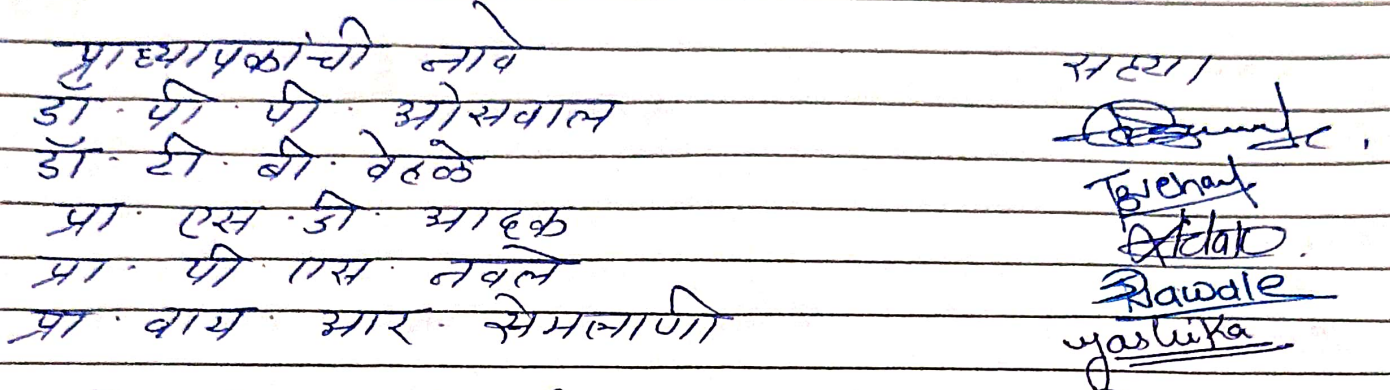 प्राध्यापकांची नावे सह्या
डॉ. पी. पी. ओसवाल
डॉ. टी. बी. वेहळे TBvehale
प्रा. एस. डी. आढक
प्रा. पी. एस. नवले Nawale
प्रा. वाय. आर. सेमलाणी yashika